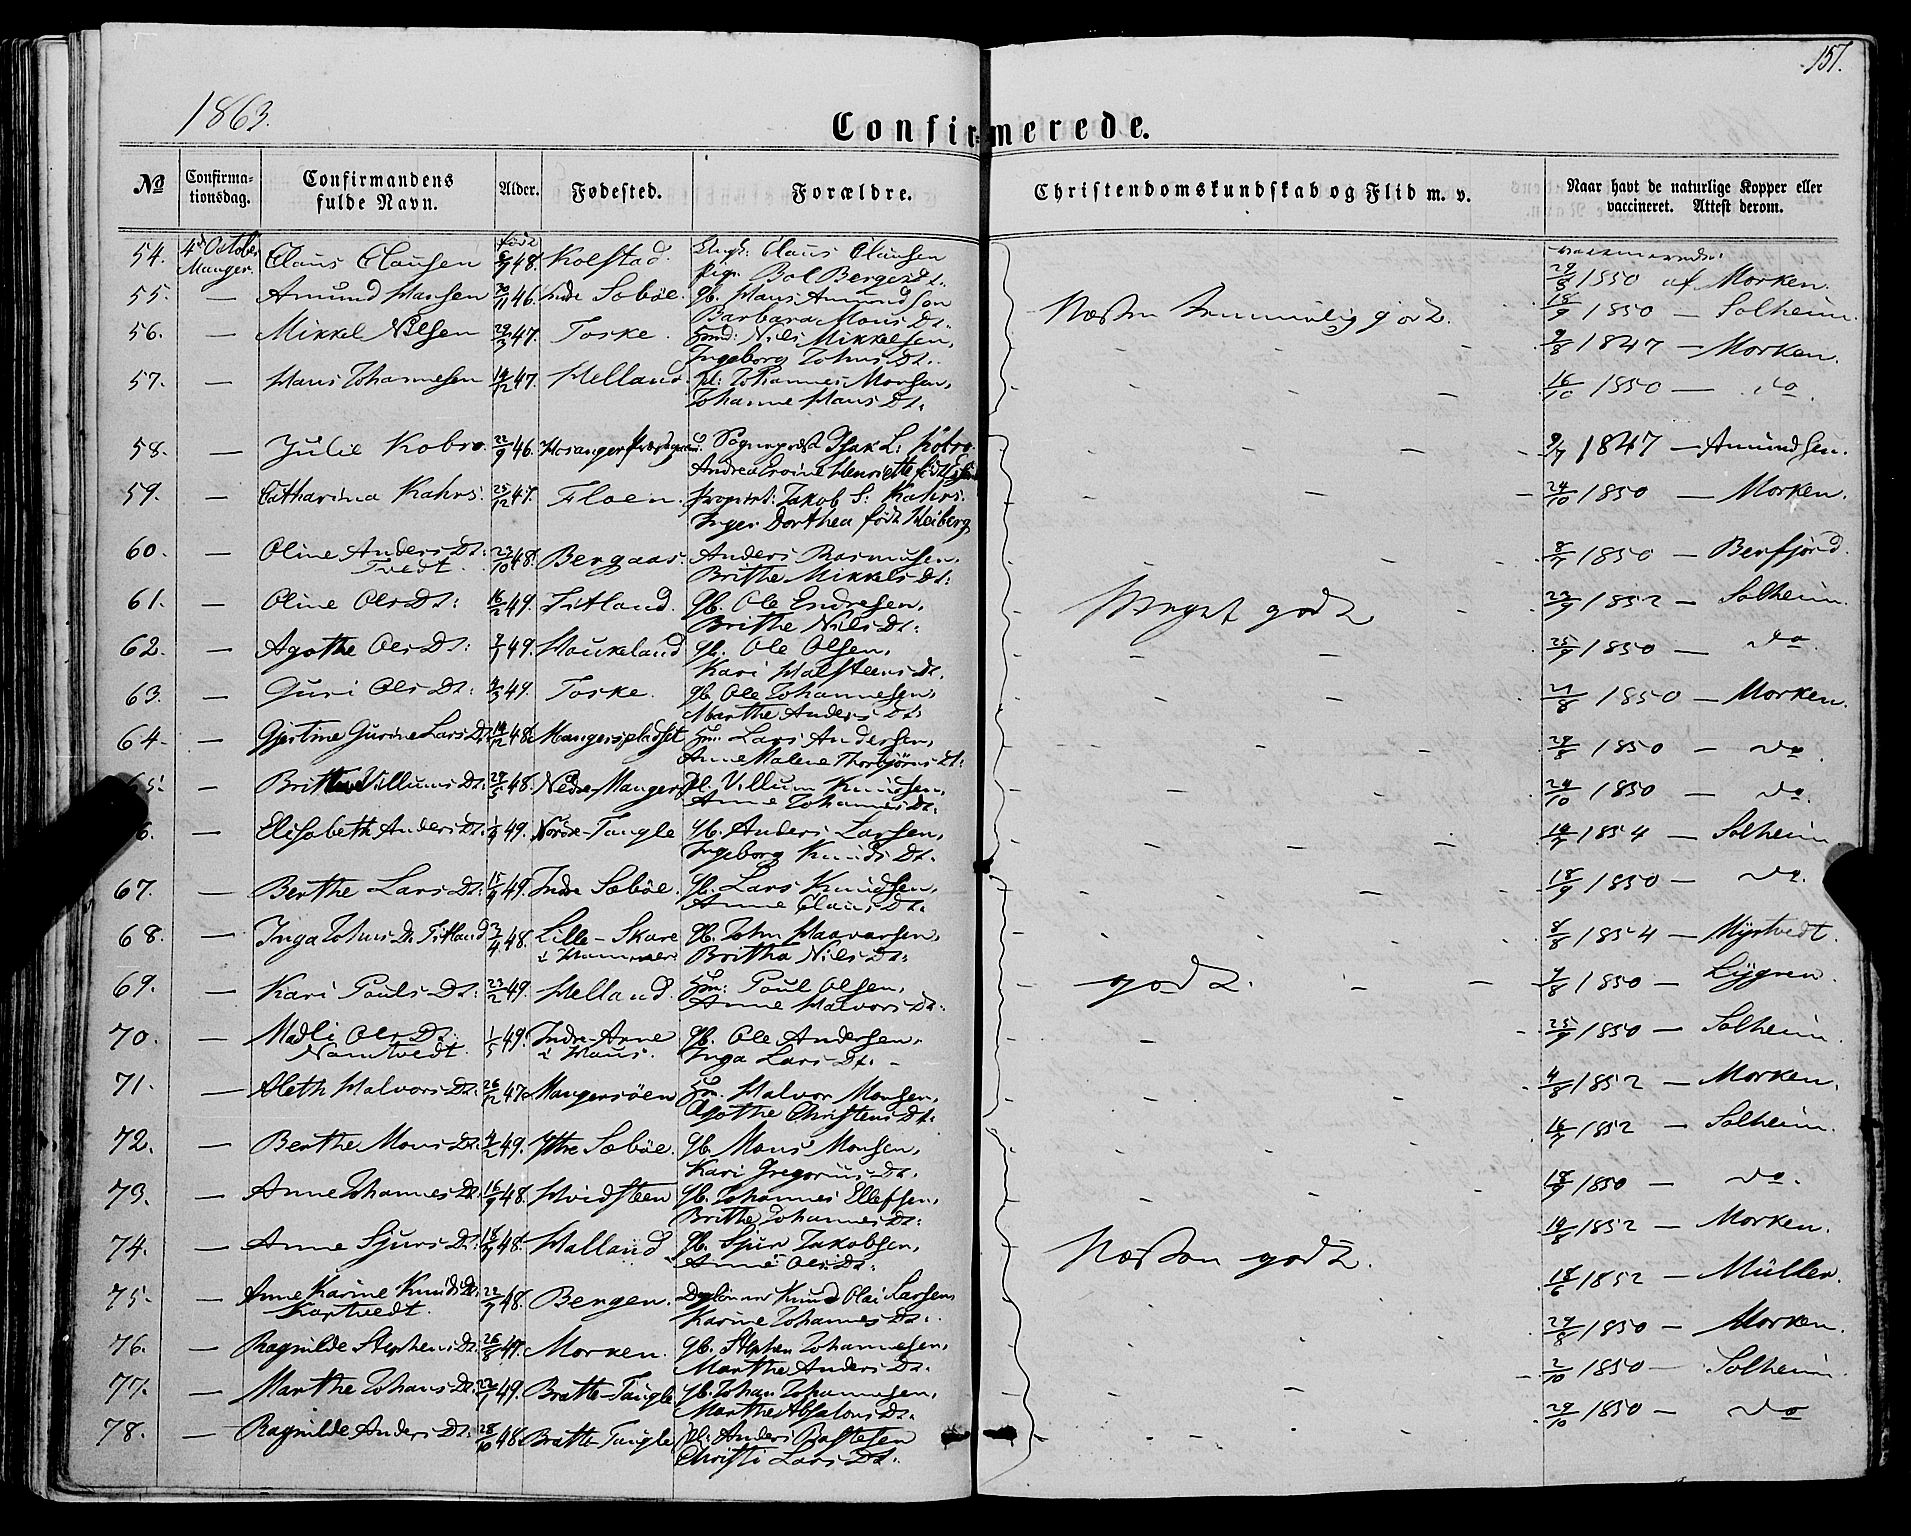 157.
1863.
Confirmerede.
No Confirmationsdag. Confirmandens fulde Navn. Alder. Fødested. Forældre. Christendomskundskab og Flid m. v. Naar havt de naturlige Kopper eller vaccineret. Attest derom.
54. 4de October Manger. Claus Clausen født 48. Kolstad. Claus Clausen
Pige Bol Berges Dt. 1850 af Morken.
55. — Amund Hansen 46. Indre Sæbøe. Gb. Hans Amundsen
Barbara Mons Dt. Næsten temmelig godt. 18/9 1850 — Solheim.
56. — Mikkel Nilsen 29/3 47. Toske. Huusmd: Niels Mikkelsen,
Ingeborg Johns Dt. 9/8 1847 — Morken.
57. — Hans Johannesen 14/12 47. Helland. Pl: Johannes Monsen,
Johanne Hans Dt. 16/10 1850 — do.
58. — Julie Kobro 22/9 46. Hosanger Præstegaard Sognepræst Isak L: Kobro
Andrea Henriette født 9/7 1847 — Amundsen.
59. — Catharina Kahrs. 25/12 47. Floen. Propriet: Jakob S: Kahrs.
Inger Dorthea født Heiberg 24/10 1850 — Morken.
60. — Oline Anders Dt: Tvedt 23/10 48. Bergaas. Anders Rasmusen.
Brithe Mikkels Dt: 8/7 1850 — Berfjord.
61. — Oline Ols Dt: 16/2 49. Titland. Gb. Ole Endresen,
Brithe Nils Dt: Meget godt 23/9 1852 — Solheim.
62. — Agothe Ols Dt: 49. Haukeland Gb. Ole Olsen,
Kari Halsteens Dt. 25/9 1850 — do.
63. — Guri Ols Dt: 49. Toske. Gb Ole Johannesen,
Marthe Anders Dt: 1850 — Morken.
64. — Gjertine Gurine Lars Dt. 14/12 48. Mangerspladset Hm: Lars Andersen,
Anne Malene Thorbjørns Dt: 29/8 1850 — do.
65. — Brithe Villums Dt: 29/5 48. Nedre-Manger Pl. Villum Knudsen,
Anne Johannes Dt: 24/10 1850 — do.
66. — Elisabeth Anders Dt: 49. Nordre-Tangle Gb. Anders Larsen,
Ingeborg Knuds Dt. 1854 — Solheim
67. — Berthe Lars Dt: 15/9 49. Indre Sæbøe. Gb. Lars Knudsen,
Anne Claus Dt. 18/9 1850 — do.
68. — Inga Johns Dt. Titland 3/4 48. Lille-Skare i Hammer Gb. John Haavarsen,
Britha Nils Dt: 8/8 1854 — Myrtvedt.
69. — Kari Pouls Dt: 23/2 49. Helland. Hm: Poul Olsen,
Anne Halvors Dt: godt. 9/8 1850 — Lygren.
70. — Madli Ols Dt. Namtvedt. 1/5 49. Indre-Arne i Haus. Gb. Ole Andersen.
Inga Lars Dt. 25/9 1850 — Solheim.
71. — Aleth Halvors Dt: 26/12 47. Mangersøen Hm. Halvor Monsen,
Agothe Christens Dt. 4/8 1852 — Morken.
72. — Berthe Mons Dt. 4/2 49. Ytre Sæbøe. Gb. Mons Monsen,
Kari Gregorius Dt. 16/7 1852 — Solheim.
73. — Anne Johannes Dt. 16/9 48. Hvidsteen Gb. Johannes Ellefsen,
Brithe Johannes Dt: 18/9 1850 — do.
74. — Anne Sjurs Dt: 48. Halland Gb. Sjur Jakobsen,
Anne Ols Dt. Næsten godt. 19/8 1852 — Morken.
75. — Anne Karine Knuds Dt. Kartvedt. 22/7 48. Bergen. Knud Olai Larsen
Karine Johannes Dt. 18/6 1852 — Müller.
76. — Ragnilde Stephens Dt. 26/8 49. Morken. Gb. Stephen Johannesen,
Marthe Anders Dt. 29/8 1850 — Morken.
77. — Marthe Johans Dt. 49. Bratte-Tangle Gb. Johan Johannesen,
Marthe Absalons Dt. 2/10 1850 — Solheim.
78. — Ragnilde Anders Dt. 28/10 48. Bratte-Tangle Pl: Anders Bastesen
Christi Lars Dt. 29/10 1850 — do